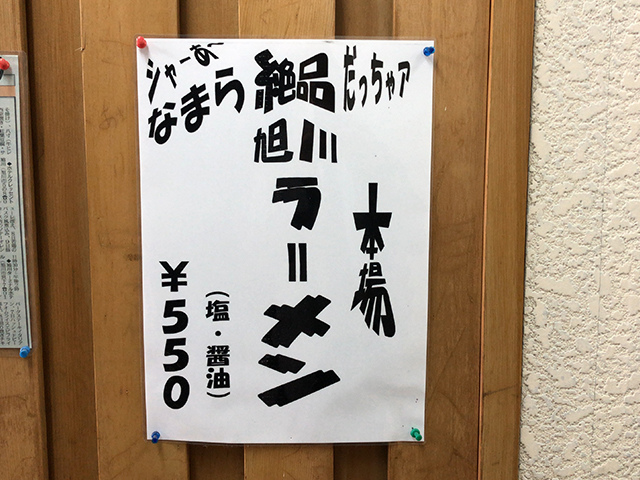 シャーあ～
なまら
絶品
だっちゃア
本場
旭川
ラーメン
(塩・醤油)
￥550